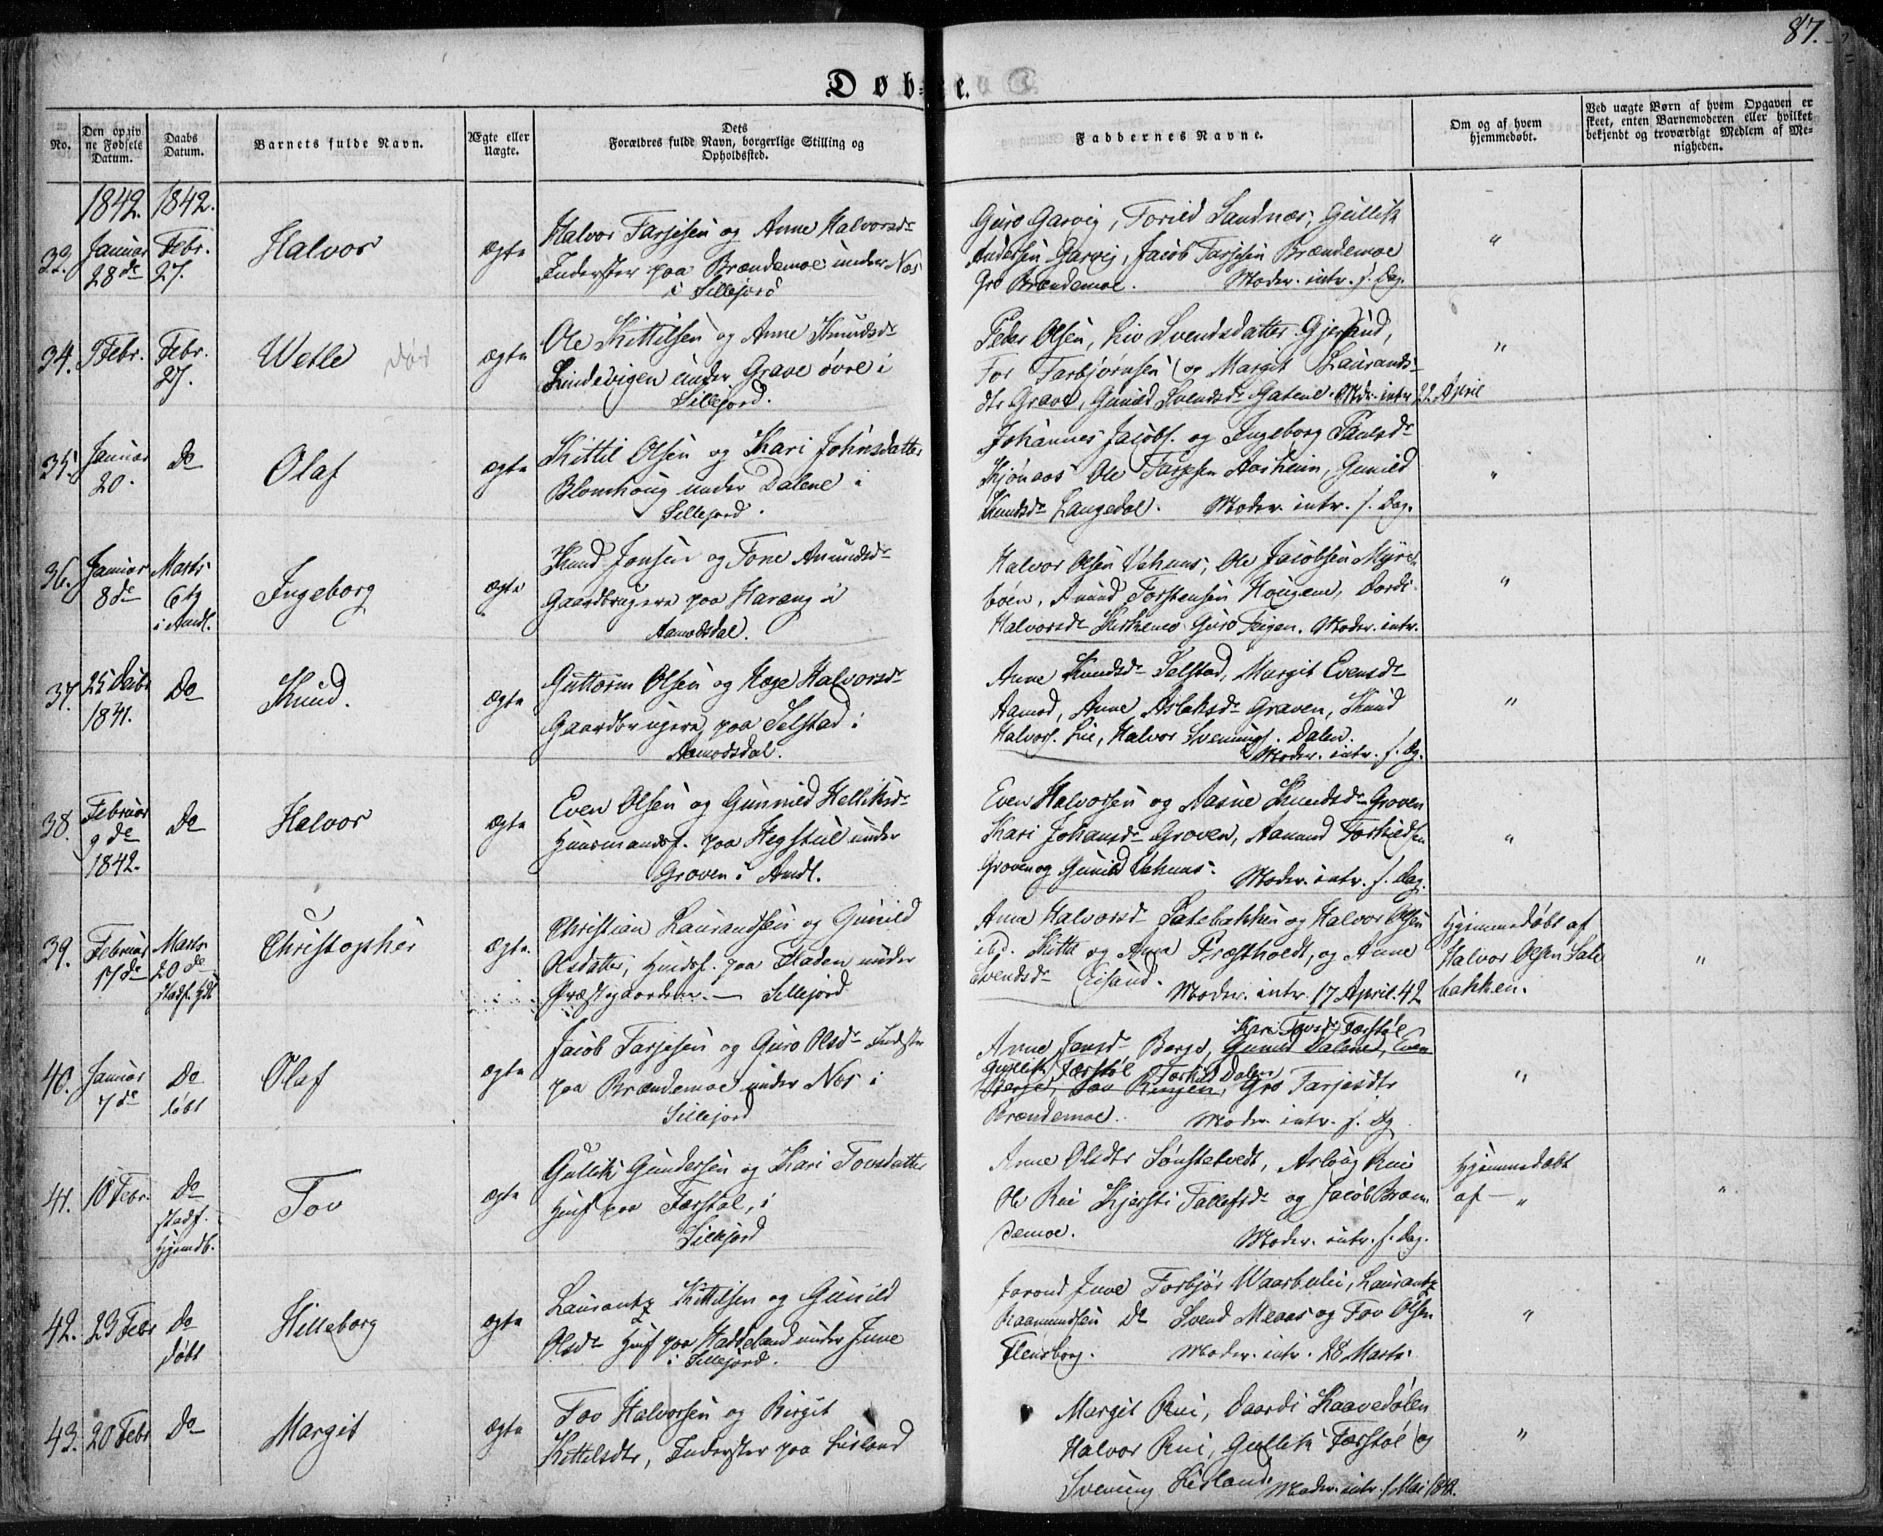 87.
Døbte.
No.
Den opgiv
ne Fødsels
Datum.
Daabs
Datum.
Barnets fulde Navn.
Ægte eller
Uægte.
Dets
Forældres fulde Navn, borgerlige Stilling og
Opholdssted.
Faddernes Navne.
Om og af hvem
hjemmedøbt.
Ved uægte Børn af hvem Opgaven er
skeet, enten Barnemoderen eller hvilket
bekjendt og troværdigt Medlem af Me-
nigheden.
1842. 1842.
33. Januar 28de
Febr. 27.
Halvor
ægte
Halvor Tarjesen og Anne Halvorsdr
Inderster paa Brændemoe under Nos
i Sillejord
Guro Garvig, Torild Sandnæs, Gullik
Andersen Garvig, Jacob Tarjesen Brændemoe
Gro Brændemoe. Moder. intr. s. Dag.
"
34. 9 Febr.
Febr. 27.
Wetle død
ægte
Ole Kittilsen og Anne Knudsdr
Lindevigen under Grave øvre i
Sillejord.
Peder Olsen, Liv Svendsdatter
Tor Tarbjørnsen og Margit Laurands-
dtr Grave, Gunild Svendsdr Gatene. Mdr. intr 22 April
"
35. Januar 20.
Do
Olaf
ægte
Kittil Olsen og Kari Johnsdatter
Blomhoug under Dalene i
Sillejord.
Johannes Jacobs. og Ingeborg Paulsdr
Kjønaas Ole Tarjesen Aarheim, Gunild
Knudsdr Langedal. Moder. intr. s. Dag.
"
36. Januar 8de
Marts 6te i Amdl.
Ingeborg
ægte
Knud Jonsen og Tone Amundsdr
Gaardbrugere paa Haræng i
Aamodsdal.
Halvor Olsen Vehuus, Ole Jacobsen Myre
bøen, Amund Torstensen Hougene, Dordi
Halvorsdr Kirkemo Guro Teigen. Moder. intr.
"
37. 25 Decbr 1841.
Do
Knud.
ægte
Guttorm Olsen og Hæge Halvorsdr
Gaardbrugere paa Selstad i
Aamodsdal.
Anne Knudsdr Selstad, Margit Evensdr
Aamod, Anne Aslaksdr Graven, Knud
Halvors. Lie, Halvor Svenungs. Dalen.
Moder. intr. s. Dg.
"
38. Februar 9de 1842.
Do
Halvor
ægte
Even Olsen og Gunnild Kelliksdr
Huusmandsf. paa Hegstul under
Groven i Amdl.
Even Halvorsen og Aasne Knudsdr Groven
Kari Johansdr Groven, Aamund Torkildsen
Groven og Gunild Vehuus. Moder. intr. s. Dag.
"
39. Februar 17de
Marts 20de stadf. Hjd
Christopher
ægte.
Christian Laurandsen og Gunild
Olsdatter, Huusf. paa Fladen under
Præstegaarden. — Sillejord
Anne Halvorsdr Salebakken og Halvor Olsen
ibd. Kittil og Anne Præstholdt, og Anne
Svendsdr Eisand. Moder. intr. 17 April. 42
Hjemmedøbt af
Halvor Olsen Sale
bakken.
"
40. Januar 7de
Do døbt
Olaf
ægte
Jacob Tarjesen og Guro Olsdr Inderster
paa Brændemoe under Nos i
Sillejord
Kari Tovsdr Færstøl
Anne Jonsd- Berge, Gunild Dalene, Even
Gullik Færstøl Torkild Dalen
Berge, Tov Ringen, Gro Tarjesdtr
Brændemoe. Moder. intr. s. Dg
"
41. 18 Febr.
Do stadf. Hjemdb.
Tov
ægte
Gullik Gundersen og Kari Tovsdatter
Husf paa Færstøl, i
Sillejord
Anne Olsdtr Sønstetvedt, Aslaug Rui
Ole Rui Kjersti Tallefsdr og Jacob Bræn
demoe. Moder. intr. s. Dag.
Hjemmedøbt
af — "
"
42. 23 Febr
Do døbt
Hilleborg
ægte
Laurantz Kittilsen og Gunild
Olsdr Husf paa Haddeland under June
i Sillejord.
Jorond June Torbjør Laurantz
Raamundsen Do Svend Meaas og Tov Olsen
Flensborg. Moder. intr. 28 Marts.
"
43. 20 Febr
Do
Margit
ægte
Tov Halvorsen og Birgit
Kittelsdtr, Inderster paa Lisland
Margit Rui, Daardi Kaavedølen
Halvor Rui, Gullik Færstøl og
Svenung Lisland Moder. intr. 1 Mai 1842.
"